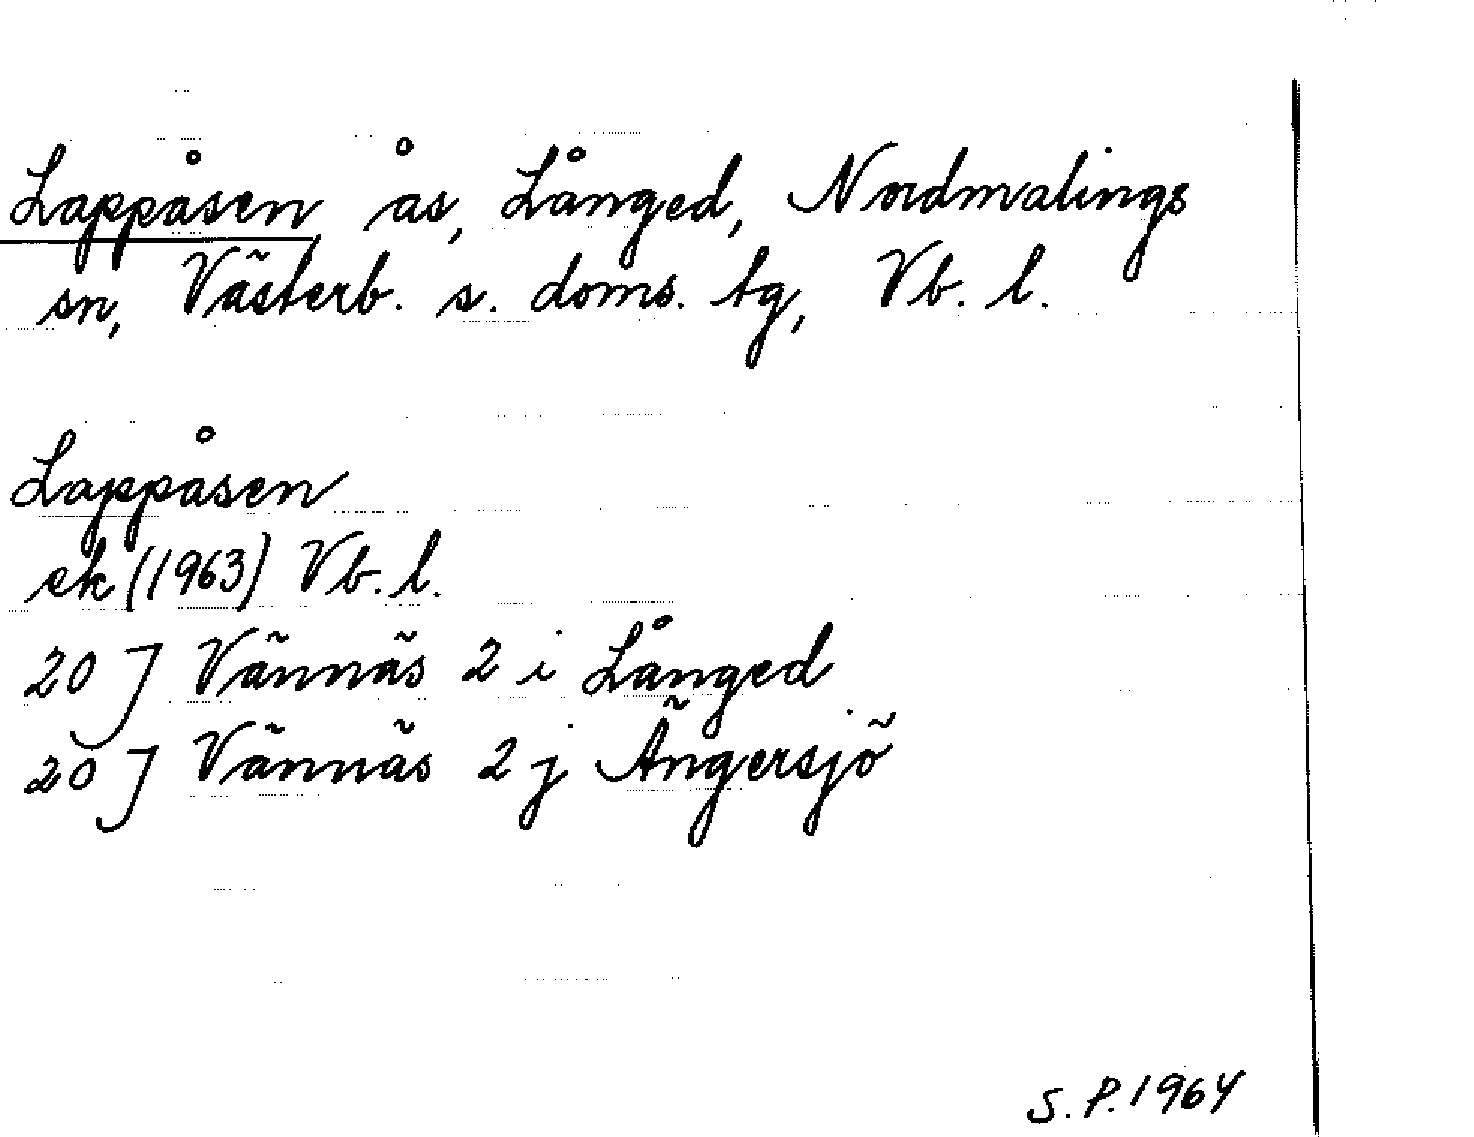 Lappåsen ås, Långed, Nordmalings
sn, Västerb. s. doms. tg, Vb. l.
Lappåsen
ek (1963) Vb. l.
20 J Vännäs 2 i Långed
20 J Vännäs 2 j Ängersjö
S. P. 1964